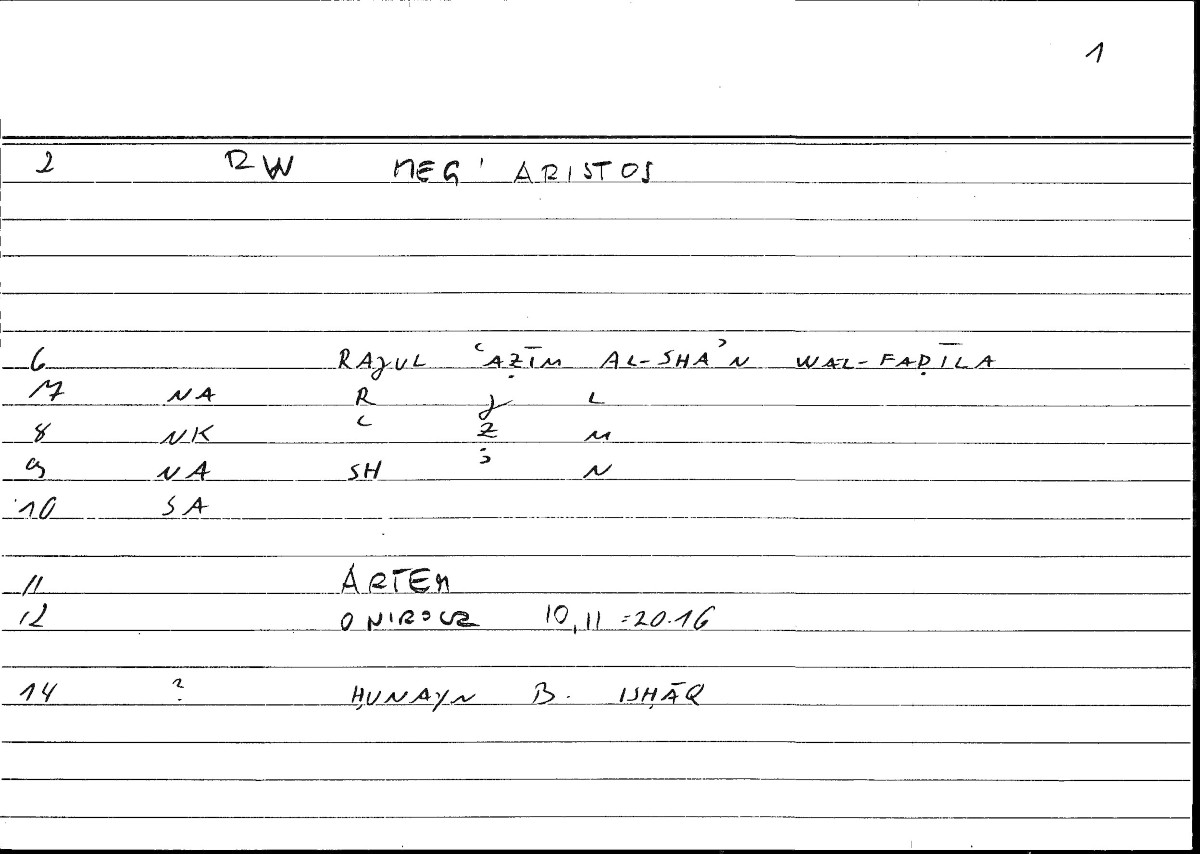 1
2 RW MEG' ARISTOS
6 RAJUL ʿAẒĪM AL-SHAʾN WAL-FAḌĪLA
7 NA R J L
8 NK ʿ Ẓ M
9 NA SH ʾ N
10 SA
11 ARTEM
12 ONIROCR 10,11 = 20.16
14 ? ḤUNAYN B. ISḤĀQ